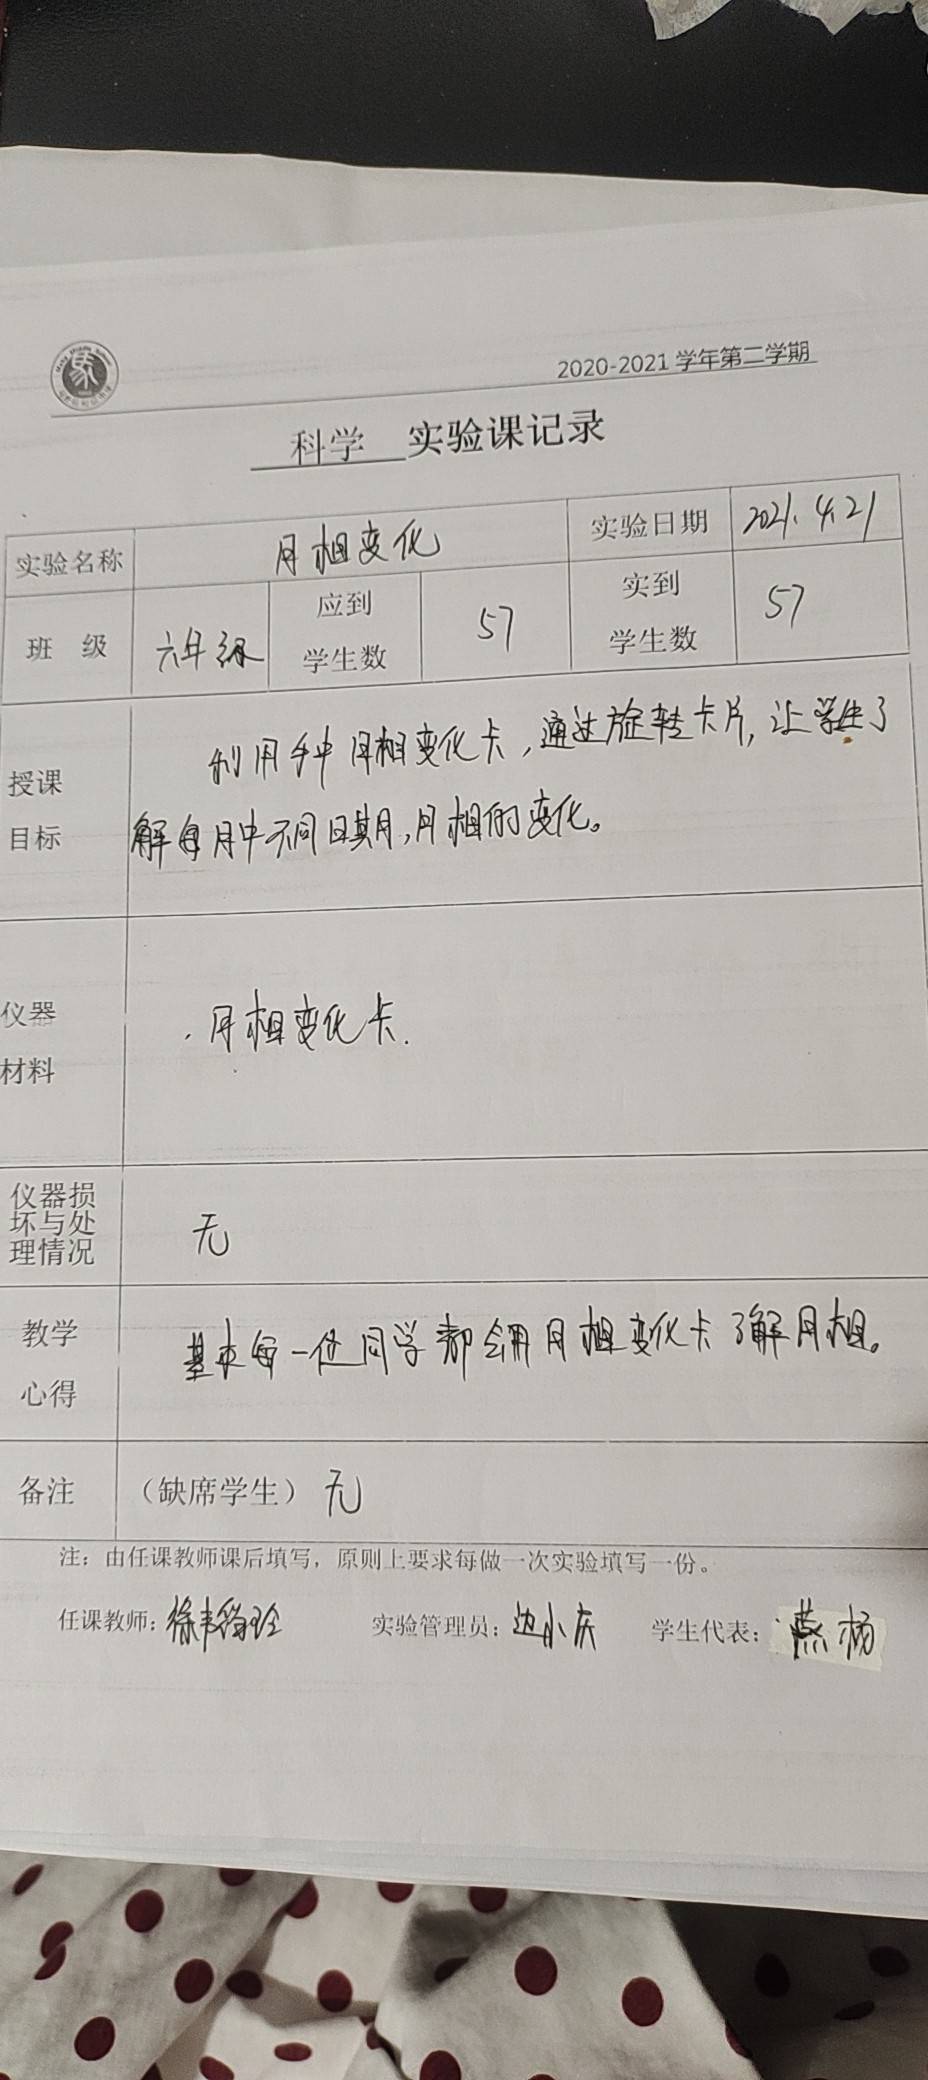 2020-2021 学年第二学期
科学 实验课记录
实验名称 月相变化 实验日期 2021.4.21
班 级 六年级 应到学生数 57 实到学生数 57
授课目标
利用手中月相变化卡，通过旋转卡片，让学生了
解每月中不同日期，月相的变化。
仪器材料
月相变化卡.
仪器损坏与处理情况 无
教学心得
基本每一位同学都会用月相变化卡了解月相。
备注 （缺席学生）无
注：由任课教师课后填写，原则上要求每做一次实验填写一份。
任课教师: 实验管理员: 边小庆 学生代表: 燕杨